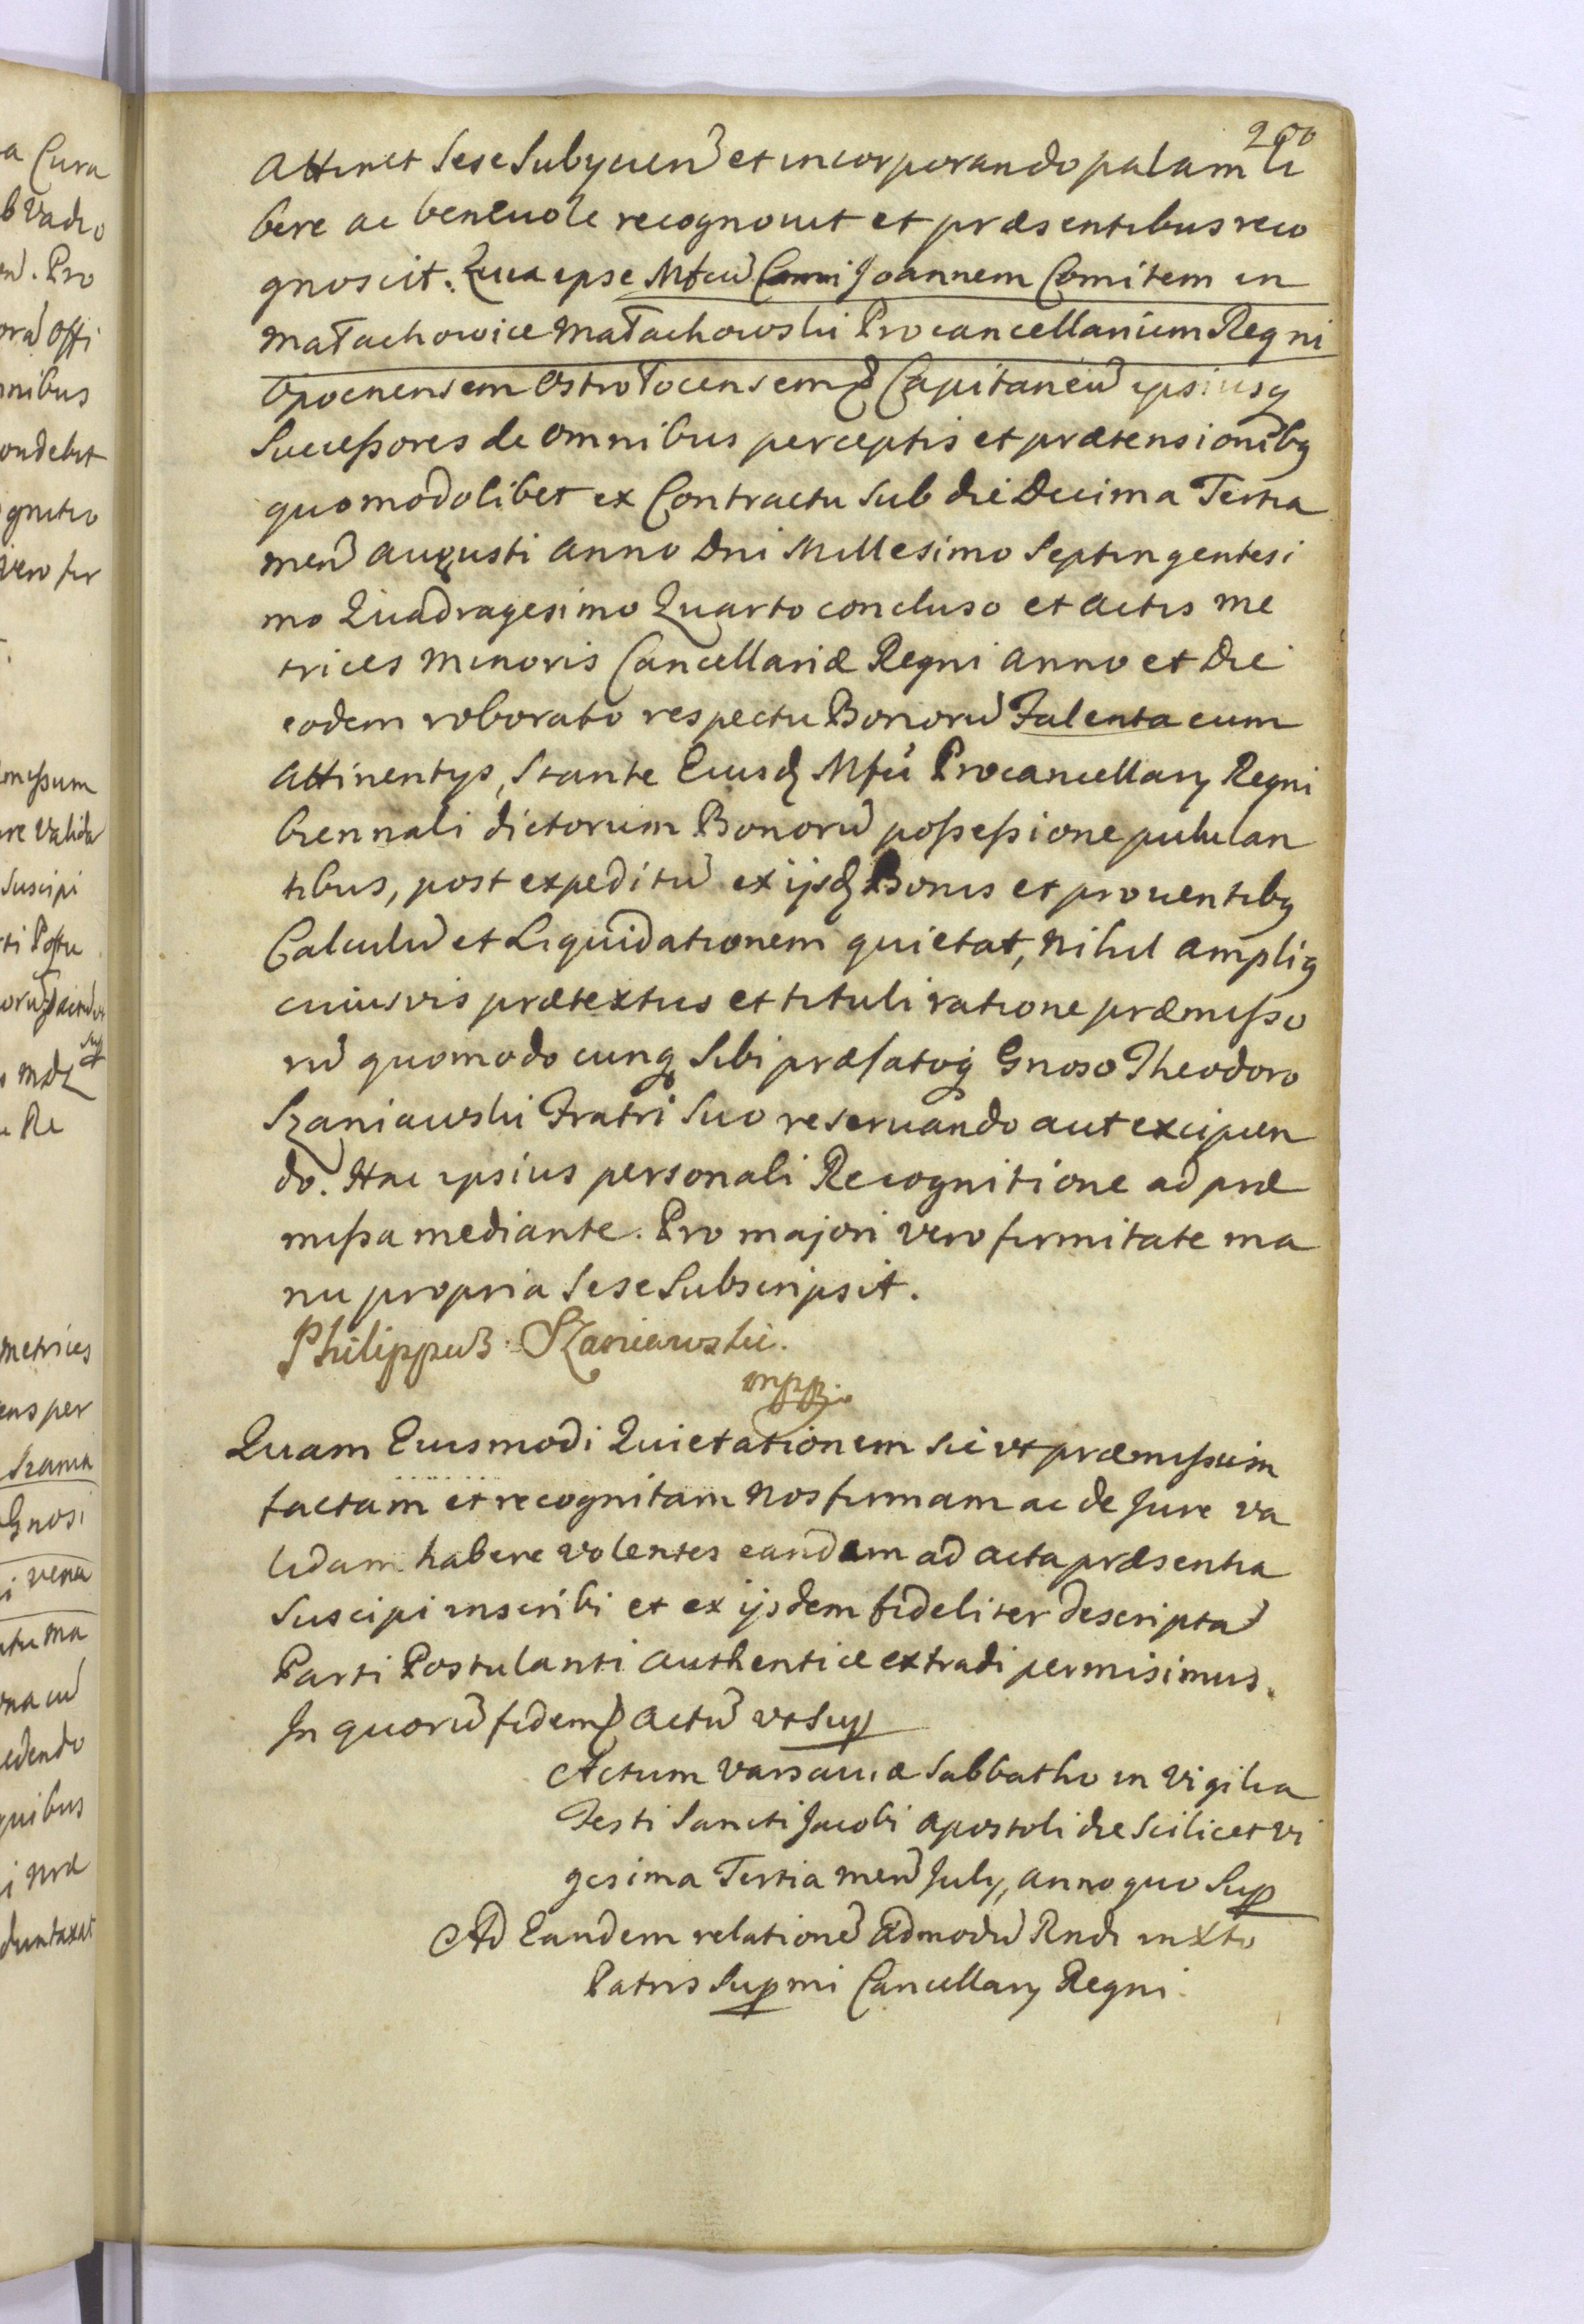 200
attinet Sese Subyciend̃ et incorporando palam li
bere ac beneuole recognouit et præsentibus reco
gnoscit. Quia ipse Mfcũ Joannem Comitem in
Małachowice Małachowski Procancellarium Regni
Opocnensem Ostrołocensemq̃ Capitaneũ ipsiusq
Successores de omnibus perceptis et prætensionibq
quomodolibet ex Contractu Sub die Decima Tertia
men̄ Augusti Anno Dni Millesimo Septingentesi
mo Quadragesimo Quarto concluso et actis me
trices Minoris Cancellariæ Regni Anno et Die
eodem roborato respectu Bonorũ Falenta cum
Attinentys, Stante Eiusdq Mfci Procancellary Regni
biennali dictorum Bonorũ poßeßione pullulan
tibus, post expeditũ ex ijsdq Bonis et prouentibq
Calculũ et Liquidationem quietat, nihil ampliq
cuiusvis prætextus et tituli ratione præmißo
rũ quomodocunq Sibi præfatoq Gnoso Theodoro
Szaniawski Fratri Suo reseruando aut excipien
do. Hac ipsius personali Recognitione ad præ
mißa mediante. Pro majori vero firmitate ma
nu propria Sese Subscripsit.
Philippus Szaniawski.
mpp.
Quam Eiusmodi Quietationem sic vt præmißum
factam et recognitam Nos firmam ac de Jure va
lidam habere volentes eandem ad acta præsentia
Suscipi inscribi et ex ijsdem fideliter descriptã
Parti Postulanti authentice extradi permisimus.
In quorũ fidem Actũ vt Sup
Actum Varsauiæ Sabbatho in Vigilia
Festi Sancti Jacobi Apostoli die Scilicet vi
gesima Tertia men̄ July, anno quo Sup
Ad Eandem relationẽ Admodũ Rndi in Xto
Patris Supmi Cancellary Regni.